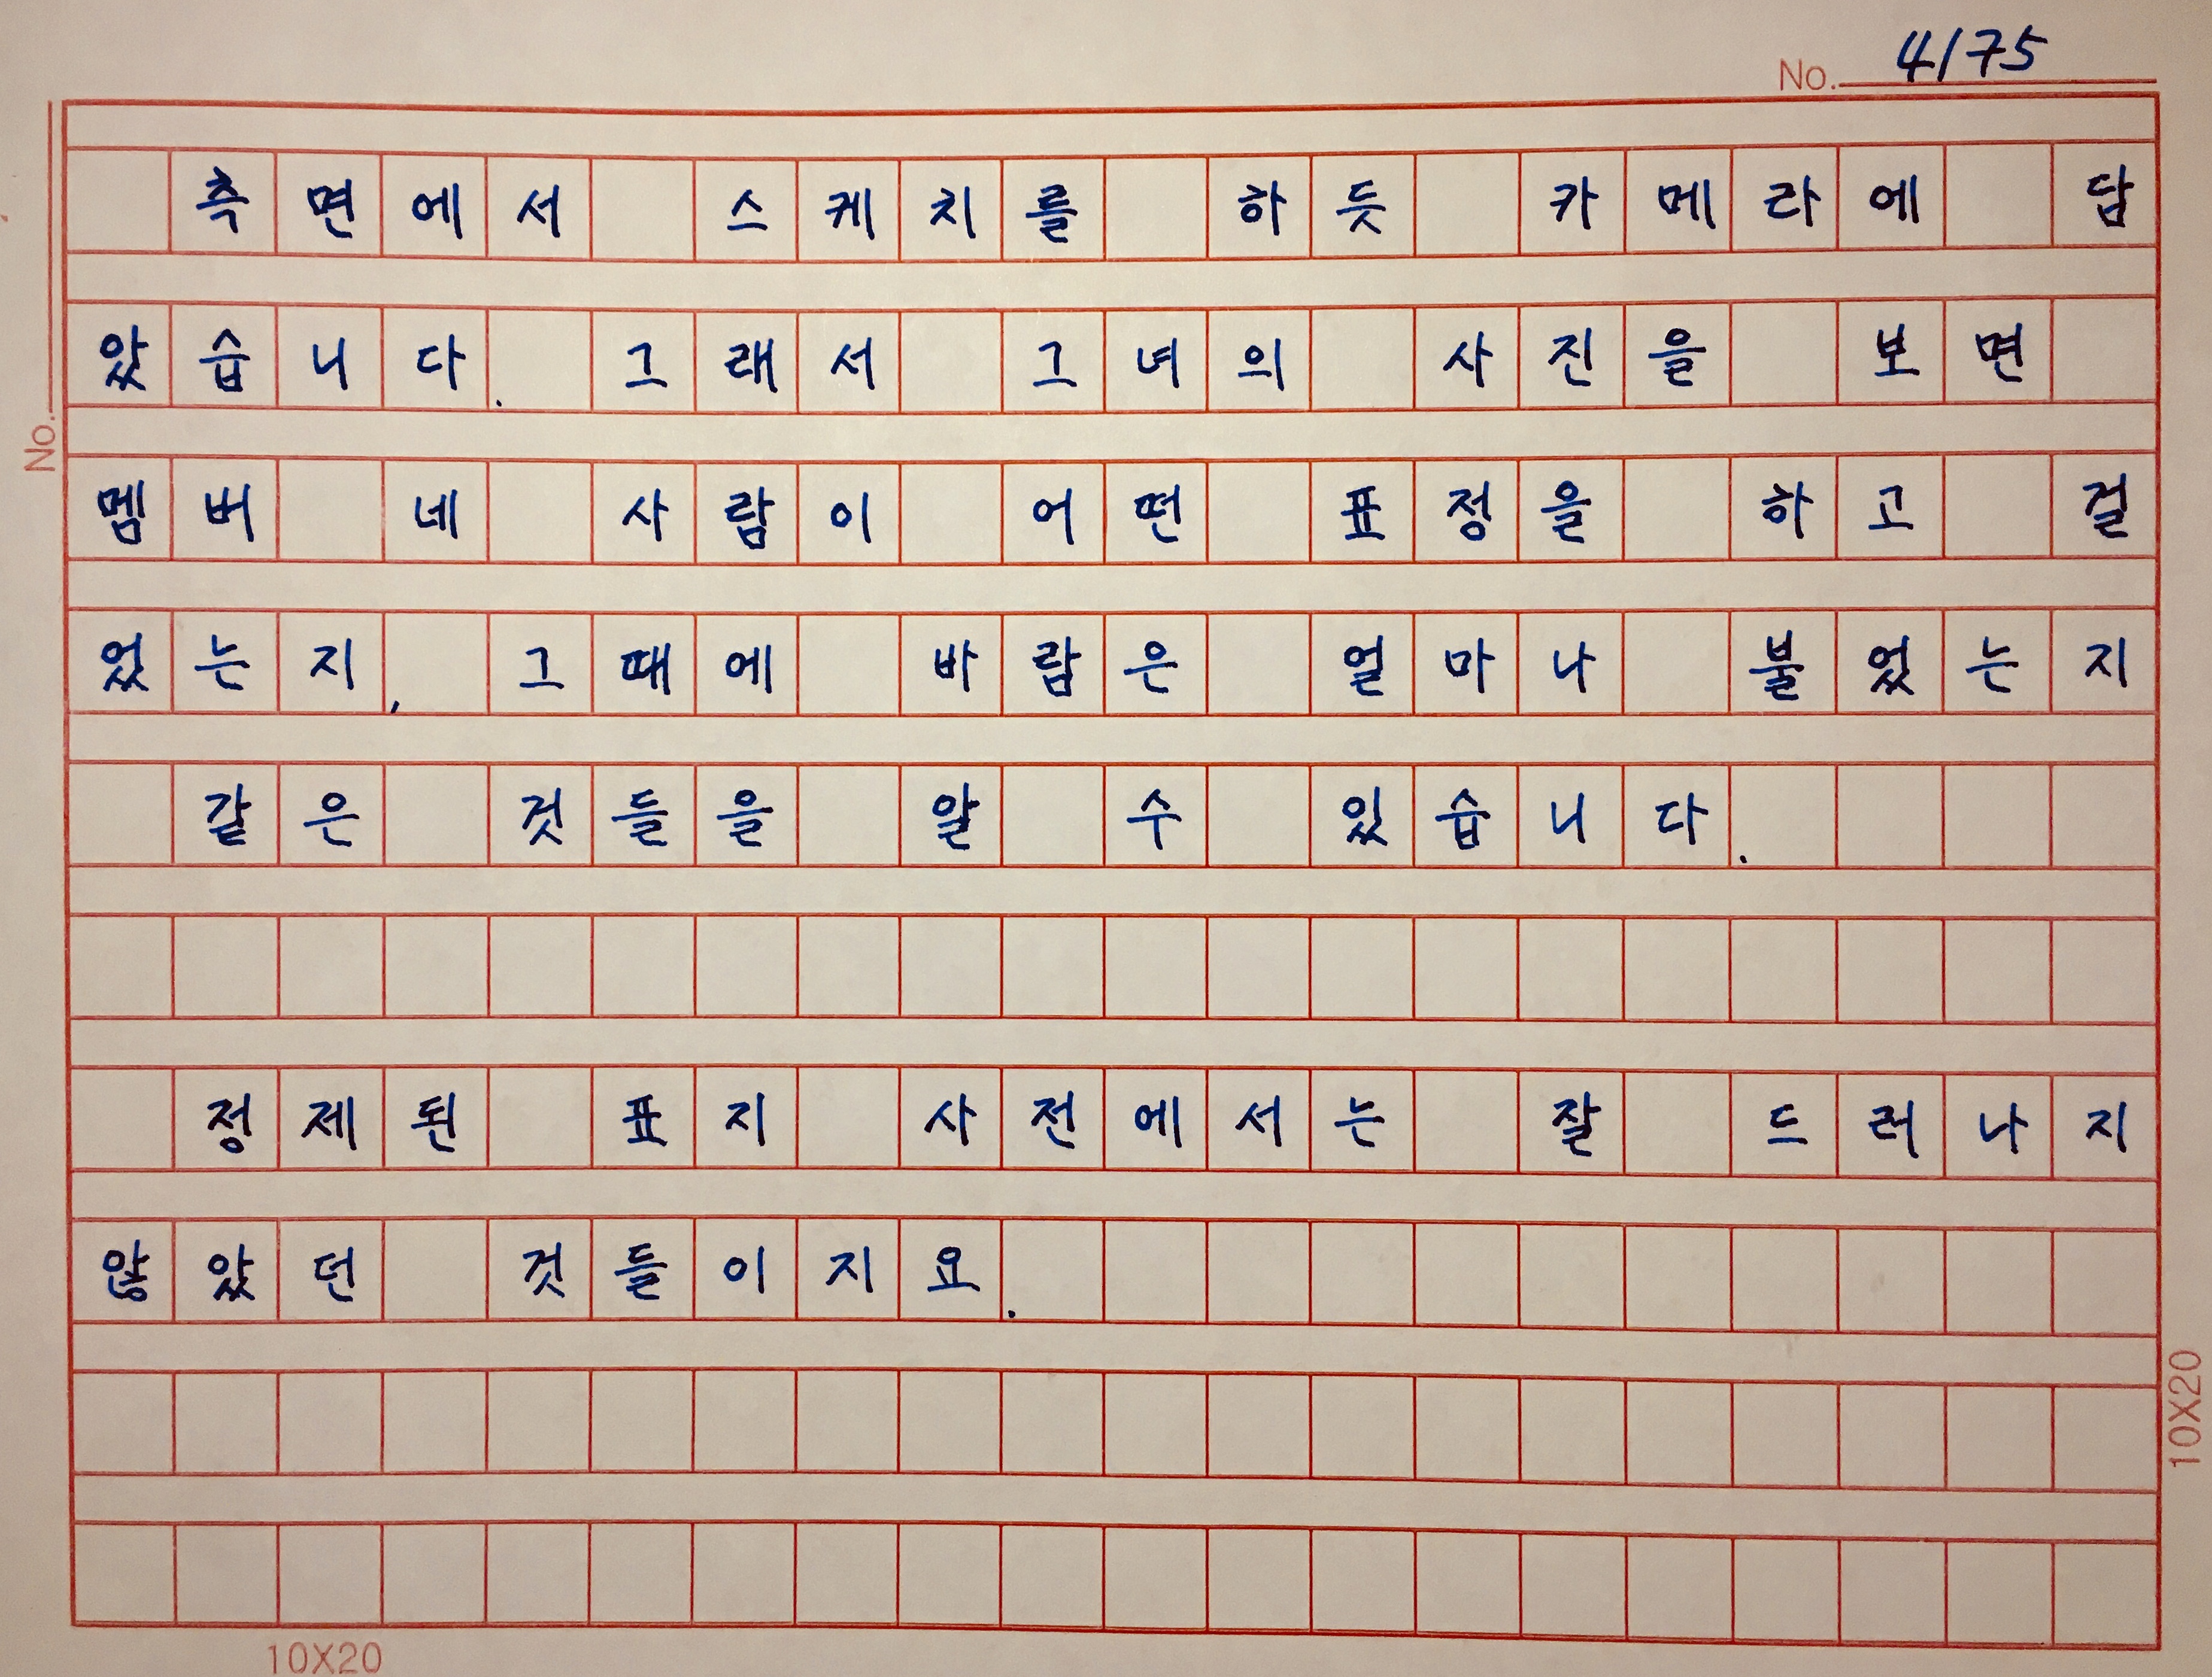 No. 4/75
측면에서 스케치를 하듯 카메라에 답
았습니다. 그래서 그녀의 사진을 보면
멤버 네 사람이 어떤 표정을 하고 걸
었는지, 그때에 바람은 얼마나 불었는지
같은 것들을 알 수 있습니다.
정제된 표지 사전에서는 잘 드러나지
않았던 것들이지요.
No.
10X20
10X20